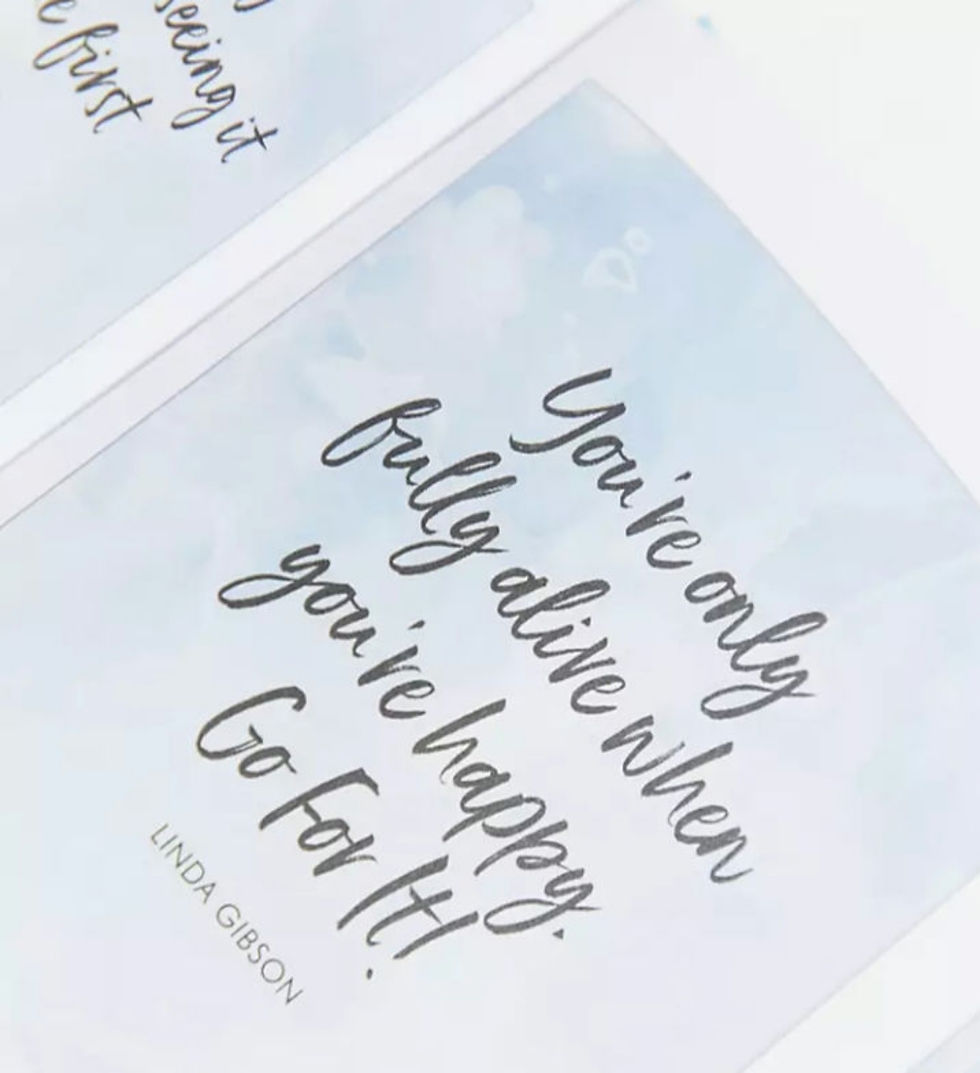 seeing it
first
You're only
fully alive when
you're happy.
Go For It!
LINDA GIBSON